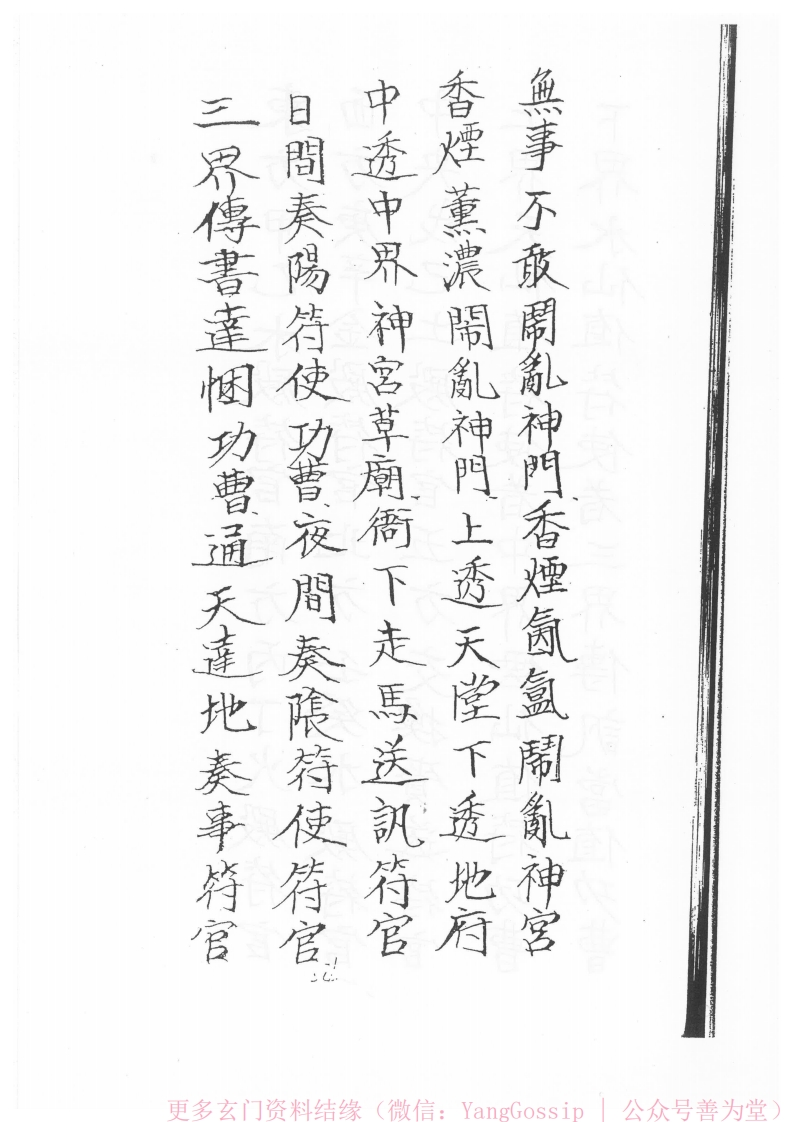 無事不敢鬧亂神門香煙氤氳鬧亂神宮
香煙薰濃鬧亂神門上透天堂下透地府
中透中界神宮草廟衙下走馬送訊符官
日間奏陽符使功曹夜間奏陰符使符官
三界傳書達悃功曹通天達地奏事符官
更多玄门资料结缘（微信：YangGossip | 公众号善为堂）